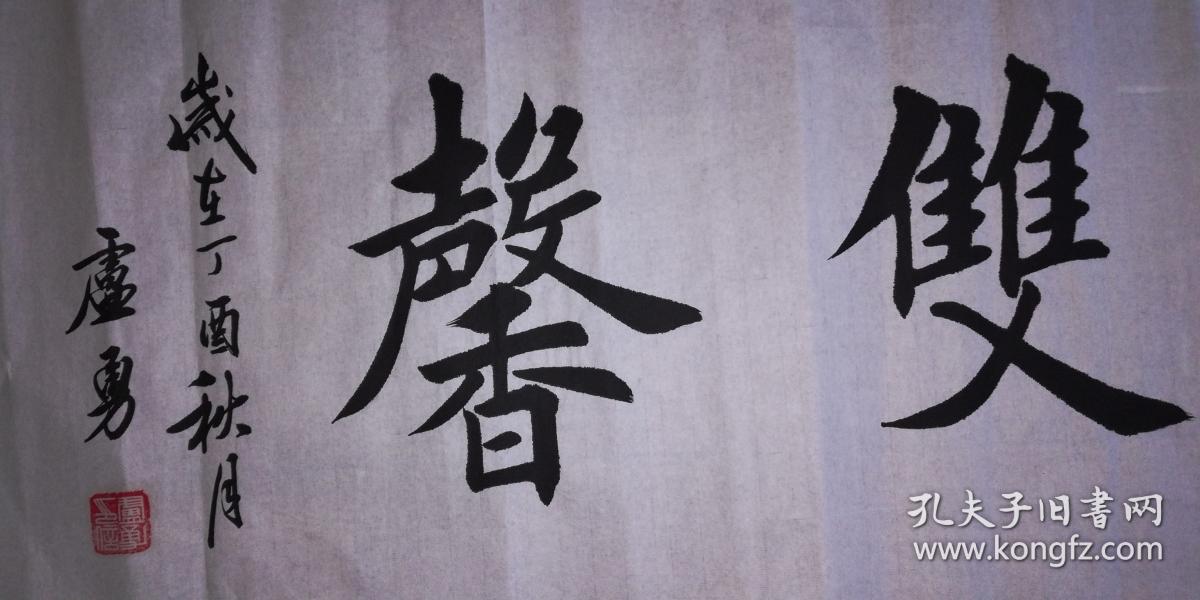 雙馨
歲在丁酉秋月
盧勇
孔夫子旧书网
www.kongfz.com